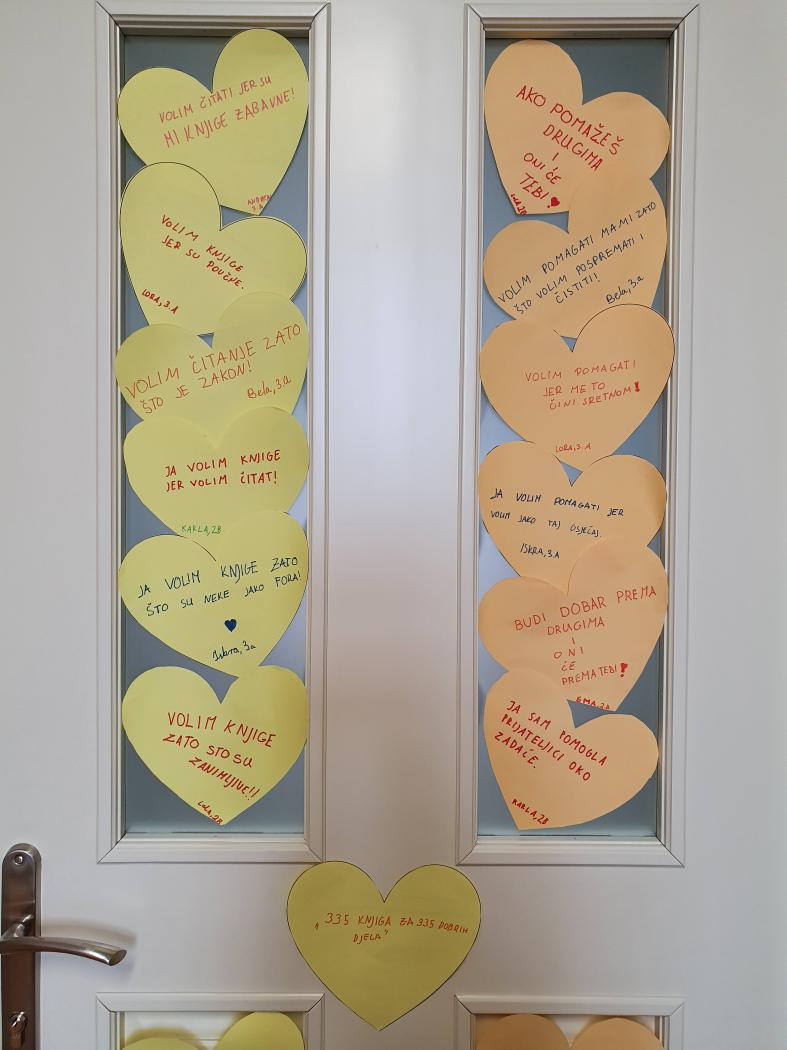 VOLIM ČITATI JER SU
MI KNJIGE ZABAVNE!
ANDREA
3.A
VOLIM KNJIGE
JER SU POUČNE.
LORA, 3.A
VOLIM ČITANJE ZATO
ŠTO JE ZAKON!
Bela, 3.a
JA VOLIM KNJIGE
JER VOLIM ČITAT!
KARLA, 2B
JA VOLIM KNJIGE ZATO
ŠTO SU NEKE JAKO FORA!
Iskra, 3.a
VOLIM KNJIGE
ZATO STO SU
ZANIMLJIVE!!
LOLA, 2B
AKO POMAŽEŠ
DRUGIMA
I
ONI ĆE
TEBI!
LOLA, 2B
VOLIM POMAGATI MAMI ZATO
ŠTO VOLIM POSPREMATI I
ČISTITI!
Bela, 3.a
VOLIM POMAGATI
JER ME TO
ČINI SRETNOM!
LORA, 3.A
JA VOLIM POMAGATI JER
VOLIM JAKO TAJ OSJEĆAJ.
ISKRA, 3.A
BUDI DOBAR PREMA
DRUGIMA
I
ONI
ĆE
PREMA TEBI!
EMA, 2A
JA SAM POMOGLA
PRIJATELJICI OKO
ZADAĆE.
KARLA, 2B
„335 KNJIGA ZA 335 DOBRIH
DJELA"